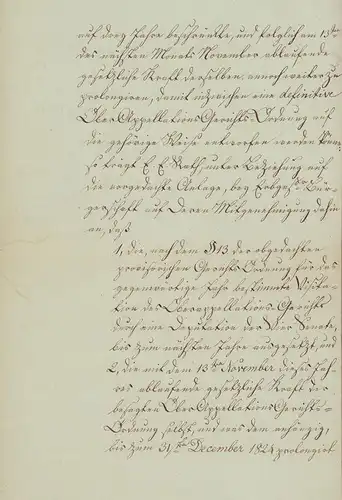 auf drey Jahre beschränkte, und folglich am 13ten
des nächsten Monats November ablaufende
gesetzliche Kraft derselben annoch weiter zu
prolongiren, damit inzwischen eine definitive
Ober Appellations Gerichts Ordnung auf
die gehörige Weise entworfen werden könne,
so trägt E. E. Rath, unter Beziehung auf
die vorgedachte Anlage, bey Erbges. Bür-
gerschaft auf Deren Mitgenehmigung dahin
an, daß
1, die, nach dem § 13 der obgedachten
provisorischen Gerichts Ordnung für das
gegenwärtige Jahr bestimmte Visita-
tion des Oberappellations-Gerichts
durch eine Deputation der Vier Senate,
bis zum nächsten Jahre ausgesetzt, und
2, die mit dem 13ten November dieses Jah-
res ablaufende gesetzliche Kraft der
besagten Ober Appellations Gerichts-
Ordnung selbst, und was dem anhängig,
bis zum 31ten December 1824 prolongirt